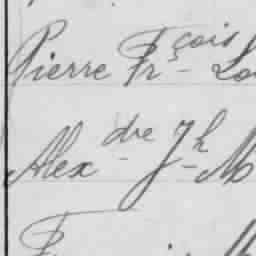 Pierre Frçois - Lo
Alexdre - Jh - M